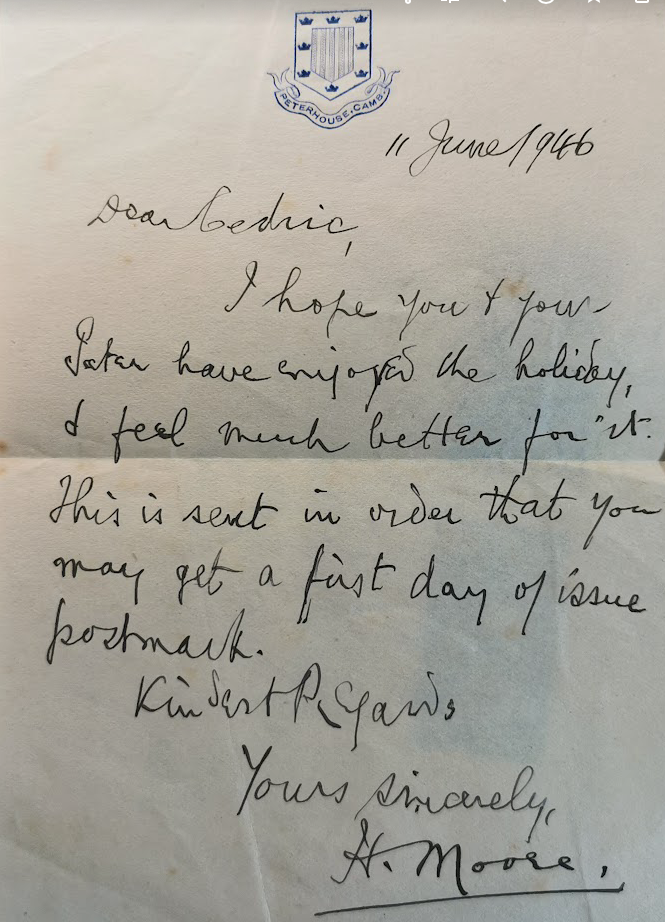 PETERHOUSE. CAMB.
11 June 1946
Dear Cedric,
I hope you & your
Peter have enjoyed the holiday,
I feel much better for it.
This is sent in order that you
may get a first day of issue
postmark.
Kindest Regards
Yours sincerely,
H. Moore.